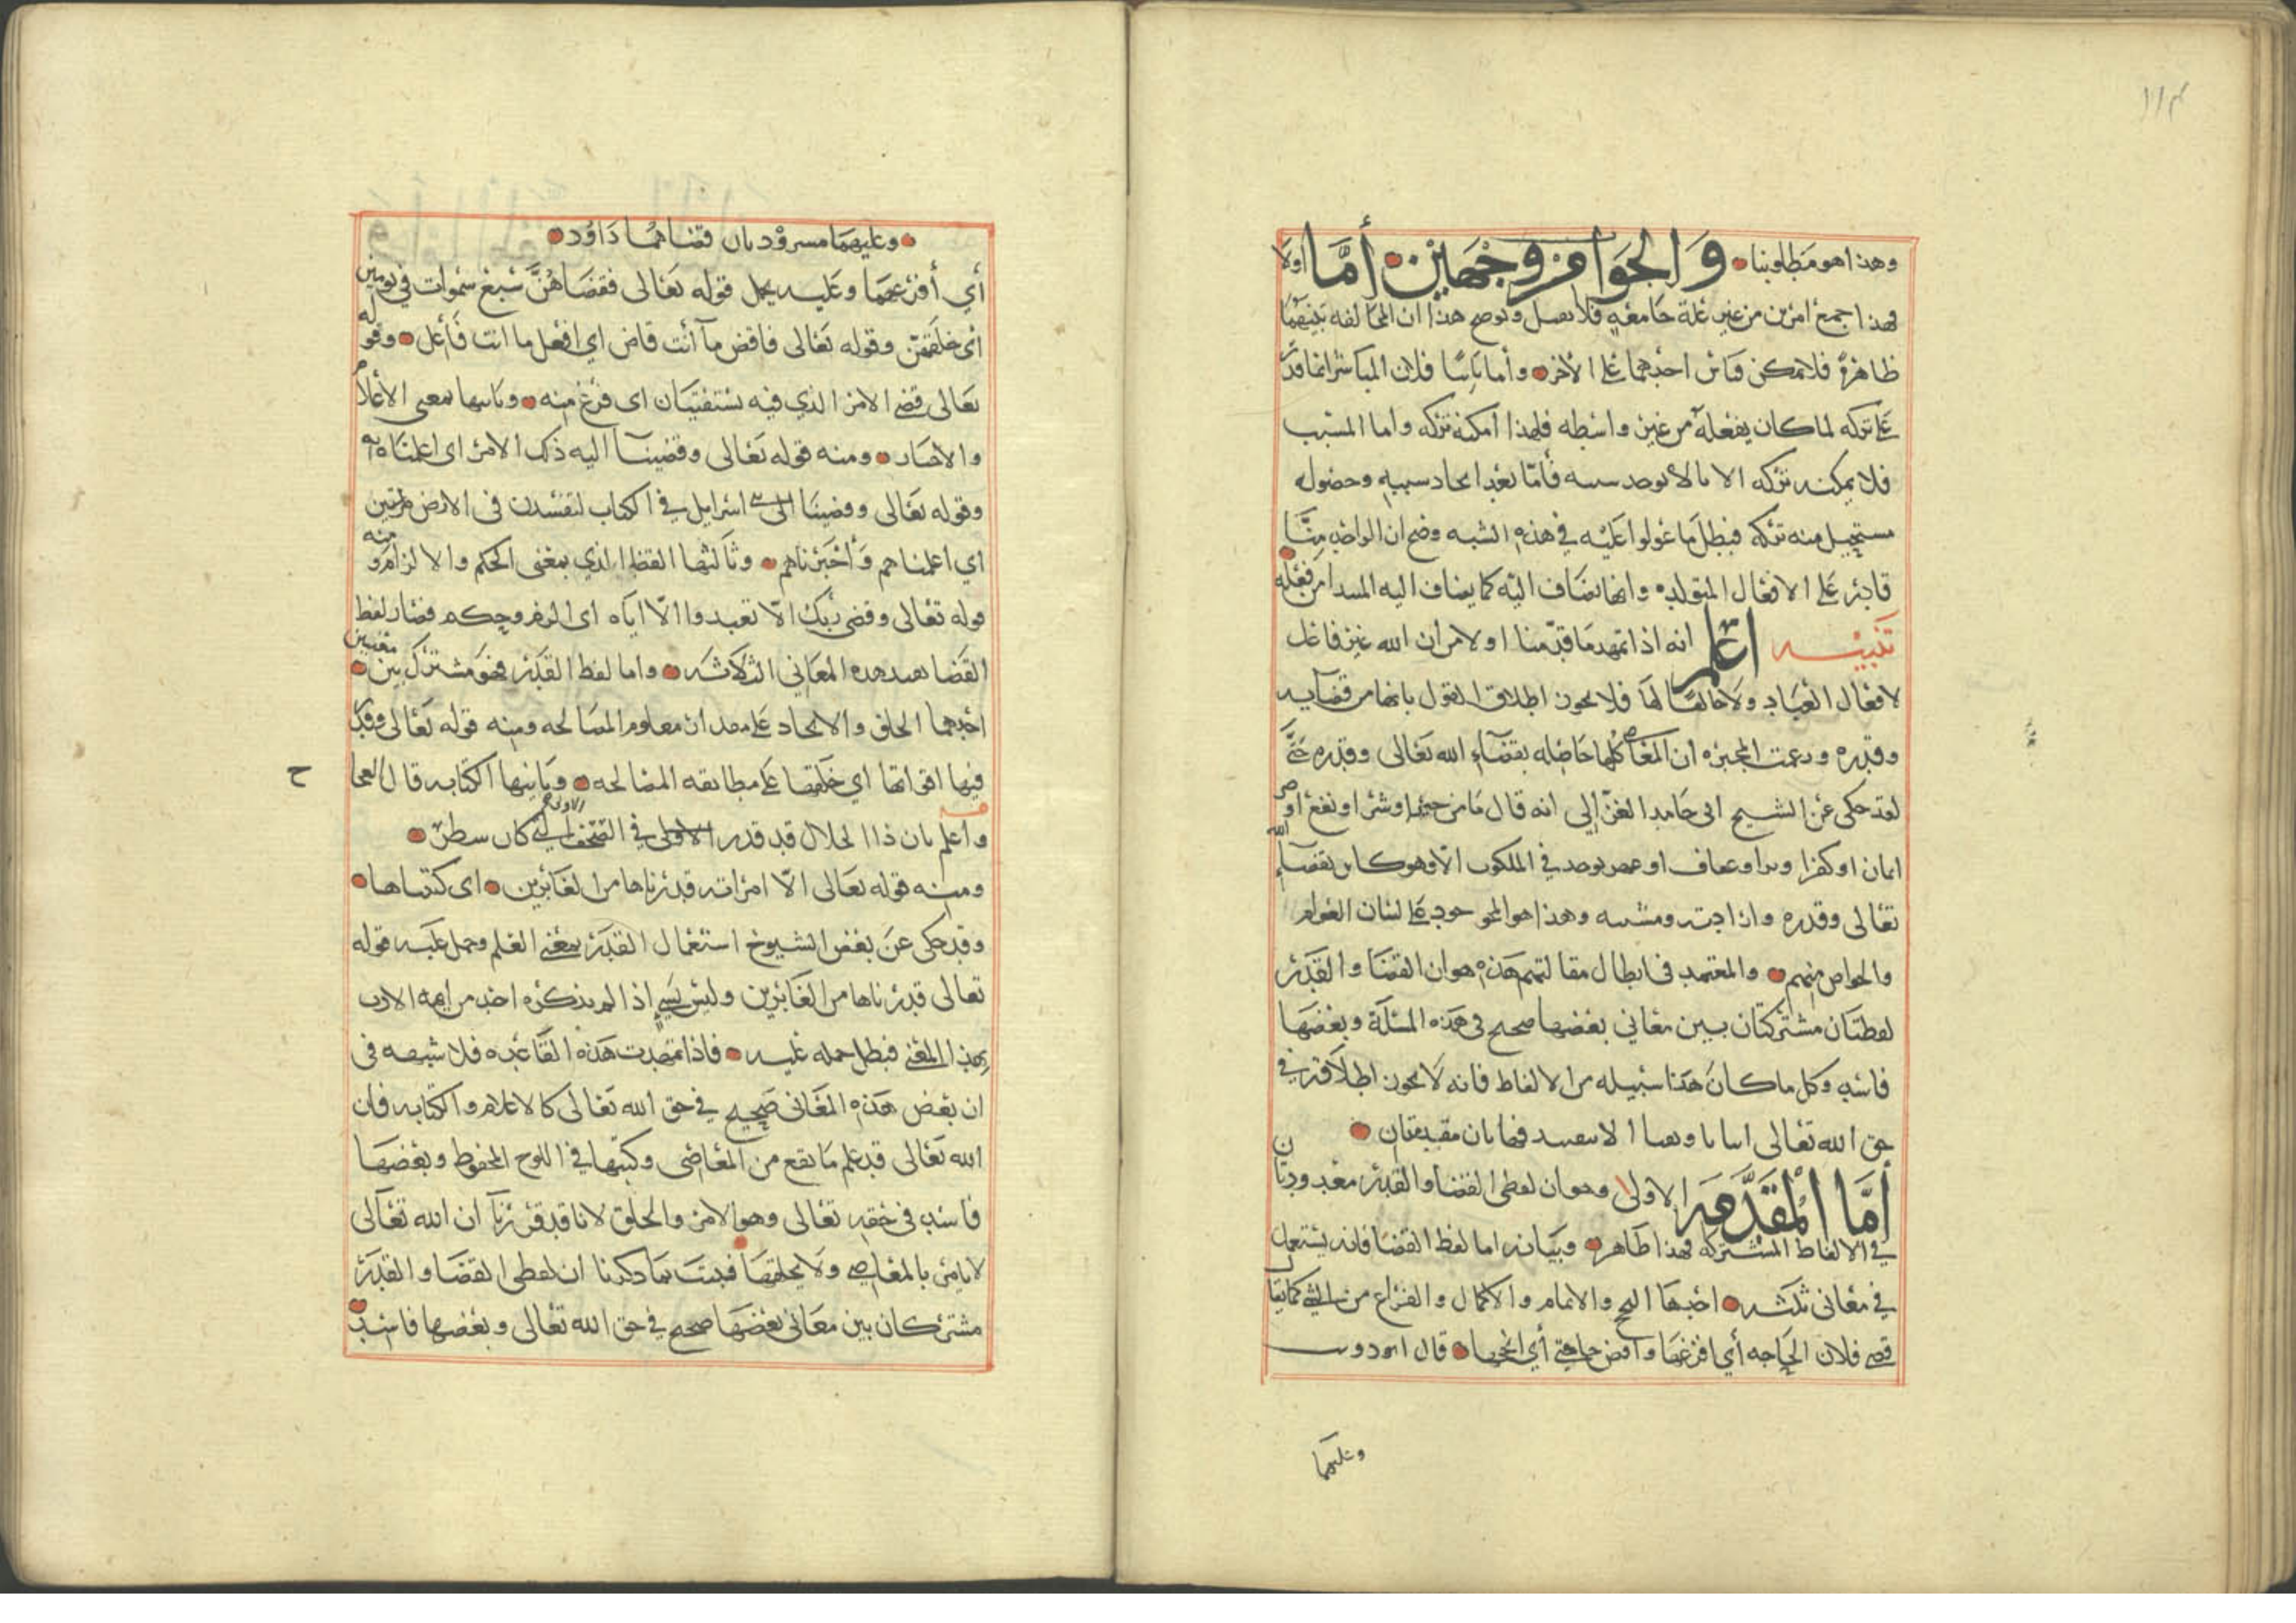 ١١٤
وهذا هو مطلوبنا والجواب من وجهين أما اولا
فهذا جمع امرين من غير علة جامعه فلا يقبل ونوضح هذا ان المخالفه بينهما
ظاهرة فلا يمكن قياس احدهما على الاخر وأما ثانيا فلان المباشر انما قدر
على تركه لما كان يفعله من غير واسطه فلهذا امكنه تركه واما المسبب
فلا يمكنه تركه الا بالا يوجد سببه فأما بعد ايجاد سببه وحصوله
مستحيل منه تركه فبطل ما عولوا عليه في هذه الشبه وضح ان الواحد منا
قادر على الافعال المتولده وانها تضاف اليه كما يضاف اليه المبتدا من فعله
تنبيه اعلم انه اذا تمهد ما قدمنا اولا من ان الله غير فاعل
لافعال العباد ولا خالقا لها فلا يجوز اطلاق القول بانها من قضايه
وقدره وزعمت المجبره ان المعاصي كلها حاصله بقضاء الله تعالى وقدره حتى
لقد حكى عن الشيخ ابي حامد الغزالي انه قال ما من خير او شر او نفع او ضر
ايمان او كفر او يوجد في الملكوت الا وهو كاين بقضاء الله
تعالى وقدره وارادته ومشيته وهذا هو الموجود على لسان العوام
والخواص منهم والمعتمد في ابطال مقالتهم هذه هو ان القضا والقدر
لفظتان مشتركتان بين معاني بعضها صحيح في هذه المسئلة وبعضها
فاسد وكل ما كان هذا سبيله من الالفاظ فانه لا يجوز اطلاقه في
حق الله تعالى اثباتا ونفيا الا بتقييد فهاتان مقدمتان
أما المقدمة الاولى وهو ان لفظي القضا والقدر معدودتان
في الالفاظ المشتركه فهذا ظاهر وبيانه اما لفظ القضا فانه يستعمل
في معاني ثلثه احدها والاتمام والاكمال والفراغ من الشي كما يقال
قضى فلان الحاجه أي افرغها واقض حاجتي أي انجزها قال ابو ذويب
وعليهما
وعليهما مسرودتان قضاهما داود
أي أفرغهما وعليه يحمل قوله تعالى فقضاهن سبع سموات في يومين
أي خلقهن وقوله تعالى فاقض ما أنت قاض اي افعل ما انت فاعل وقوله
تعالى قضي الامر الذي فيه تستفتيان اى فرغ منه وثانيها بمعنى الاعلام
والاخبار ومنه قوله تعالى وقضينا اليه ذلك الامر اى اعلمناه به
وقوله تعالى وقضينا الى بني اسرايل في الكتاب لتفسدن في الارض مرتين
اي اعلمناهم وأخبرناهم وثالثها القضا الذي بمعنى الحكم والالزام ومنه
قوله تعالى وقضى ربك الا تعبدوا الا اياه اى الزم وحكم فصار لفظ
القضا يفيد هذه المعاني الثلاثه واما لفظ القدر فهو مشترك بين معنيين
احدهما الخلق والايجاد على مقدار معلوم المصالحه ومنه قوله تعالى وقدر
فيها اقواتها اي خلقها على مطابقه المصالحه وثانيها الكتابه قال العجاج
واعلم بان ذا الجلال قد قدر في الصحف الاولى التي كان سطر
ومنه قوله تعالى الا امراته قدرناها من الغابرين اى كتبناها
وقد حكى عن بعض الشيوخ استعمال القدر بمعنى العلم وحمل عليه قوله
تعالى قدرناها من الغابرين وليس بشي اذا لم يذكره احد من ايمه الادب
بهذا المعنى فبطل حمله عليه فاذا تمهدت هذه القاعده فلا شبهه في
ان بعض هذه المعاني صحيح في حق الله تعالى كالاعلام والكتابه فان
الله تعالى قد علم ما يقع من المعاصي وكتبها في اللوح المحفوظ وبعضها
فاسد في حقه تعالى وهو الامر والخلق لانا قد قررنا ان الله تعالى
لا يامر بالمعاصي ولا يخلقها فثبت بما ذكرنا ان لفظي القضا والقدر
مشتركان بين معاني بعضها صحيح في حق الله تعالى وبعضها فاسد